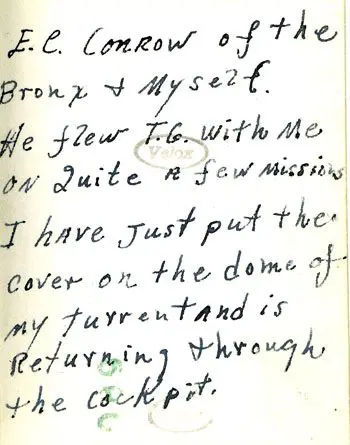 E.C. Conrow of the
Bronx + Myself.
He flew T.G. with Me
on Quite a few Missions
I have just put the
cover on the dome of
my turrent and is
Returning through
the cockpit.
Velox